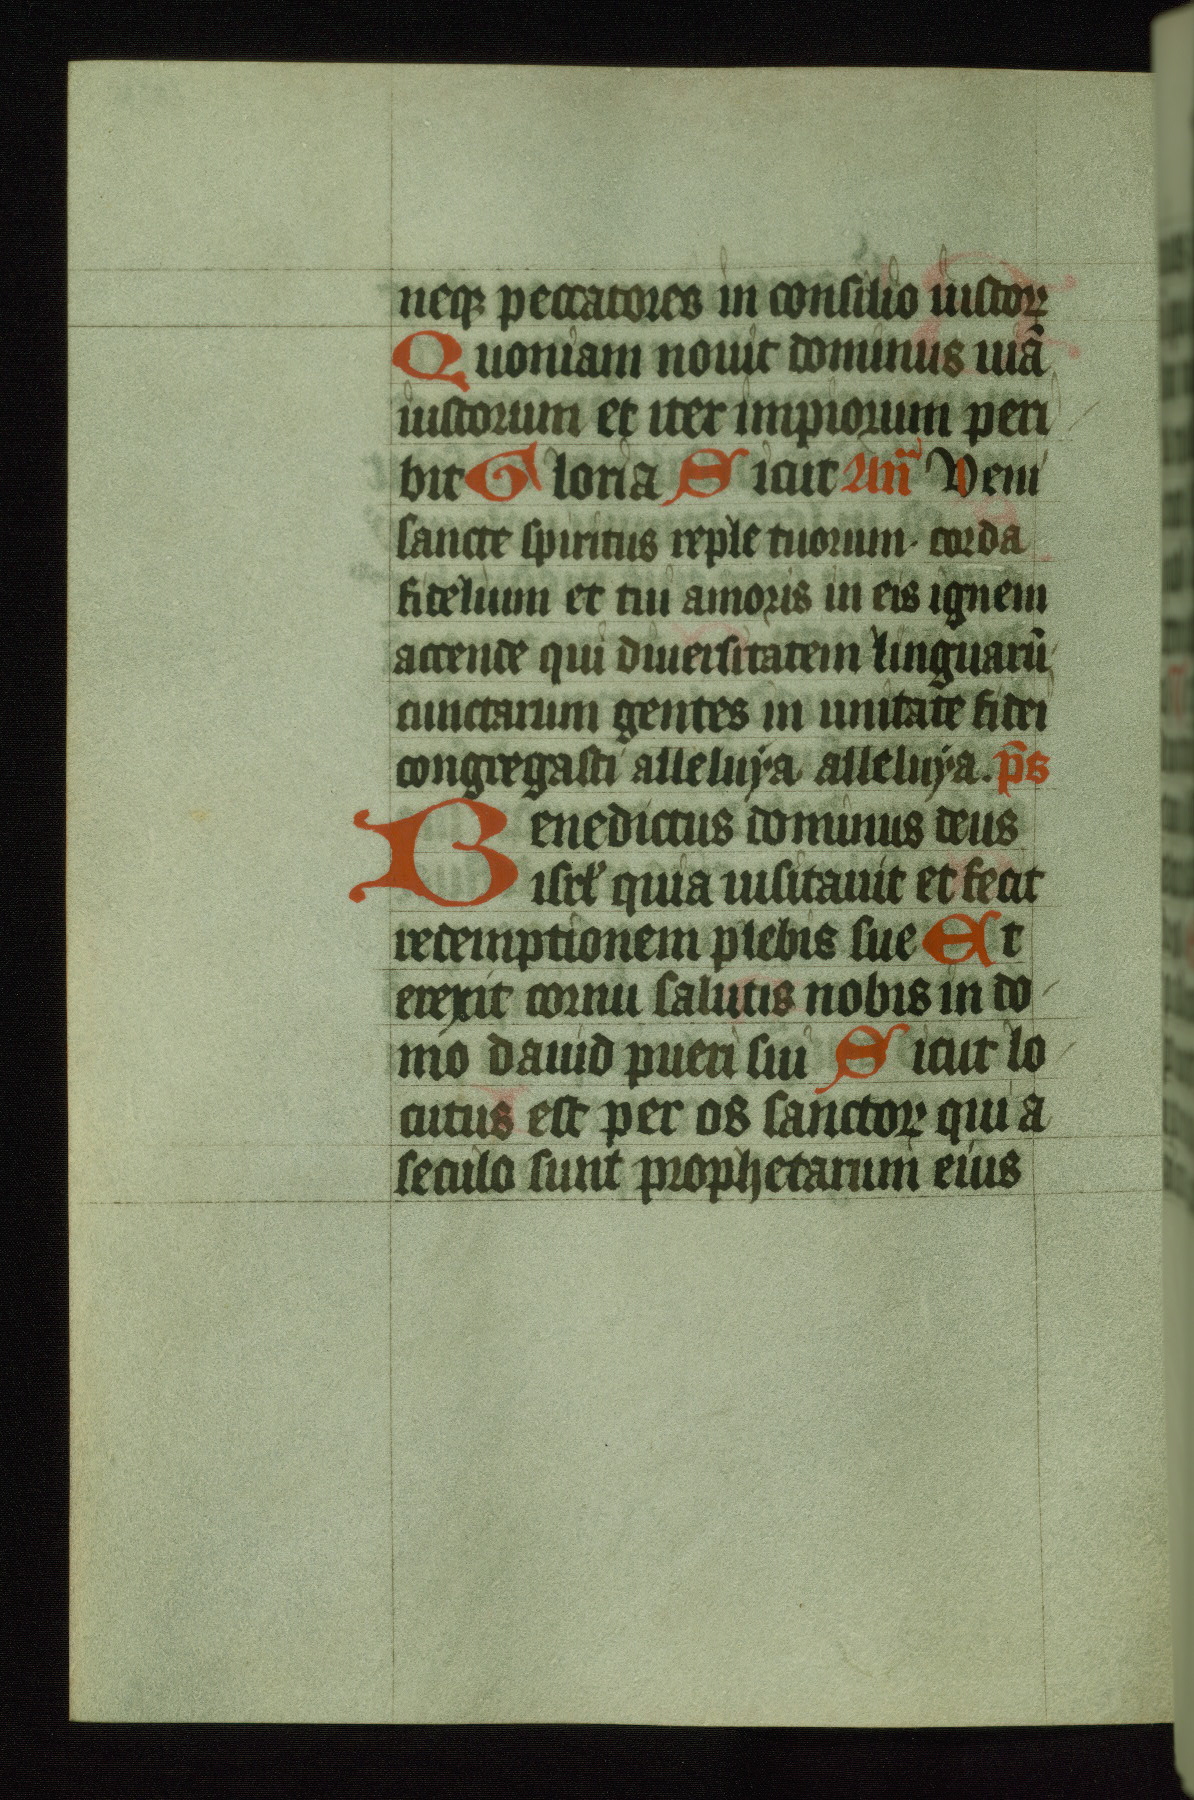 neqꝫ peccatores in consilio iustoꝝ
Quoniam nouit dominus uiā
iustorum et iter impiorum peri
bit Gloria Sicut Añ Veni
sancte spiritus reple tuorum · corda
fidelium et tui amoris in eis ignem
accende qui diuersitatem linguarū
cunctarum gentes in unitate fidei
congregasti alleluya alleluya. p̄s
Benedictus dominus deus
isrl̾ quia uisitauit et fecit
redemptionem plebis sue Et
erexit cornu salutis nobis in do
mo dauid pueri sui Sicut lo
cutus est per os sanctoꝝ qui a
seculo sunt prophetarum eius